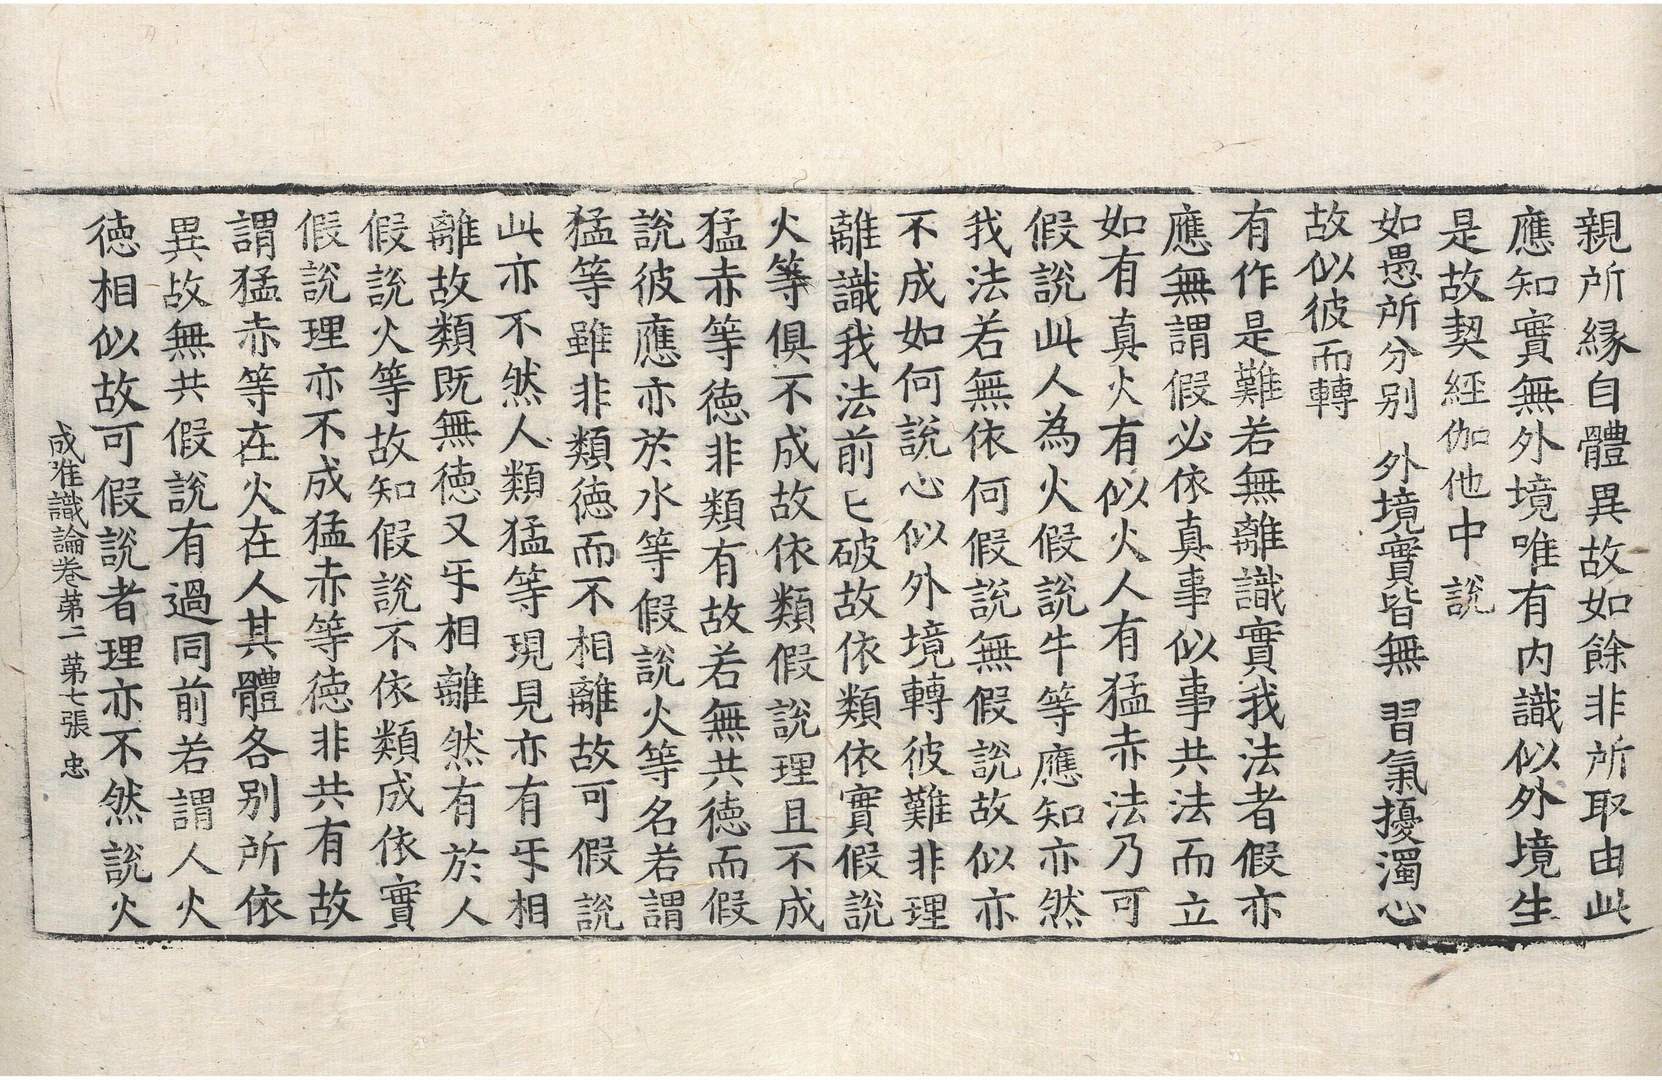 親所縁自體異故如餘非所取由此
應知實無外境唯有内識似外境生
是故契經伽他中說
如愚所分別 外境實皆無 習氣擾濁心
故似彼而轉
有作是難若無離識實我法者假亦
應無謂假必依真事似事共法而立
如有真火有似火人有猛赤法乃可
假說此人為火假說牛等應知亦然
我法若無依何假說無假說故似亦
不成如何說心似外境轉彼難非理
離識我法前已破故依類依實假說
火等俱不成故依類假說理且不成
猛赤等徳非類有故若無共徳而假
說彼應亦於水等假說火等名若謂
猛等雖非類徳而不相離故可假說
此亦不然人類猛等現見亦有乎相
離故類既無徳又乎相離然有於人
假說火等故知假說不依類成依實
假說理亦不成猛赤等徳非共有故
謂猛赤等在火在人其體各別所依
異故無共假說有過同前若謂人火
徳相似故可假說者理亦不然說火
成唯識論卷苐二 第七張 忠